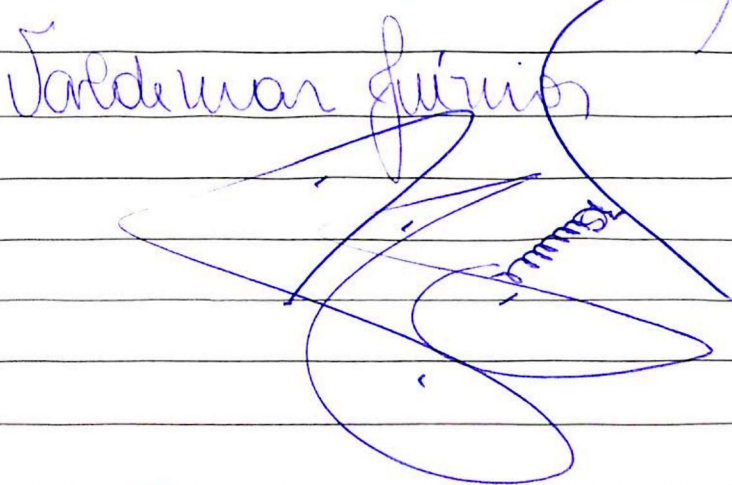 Valdemar Júnior